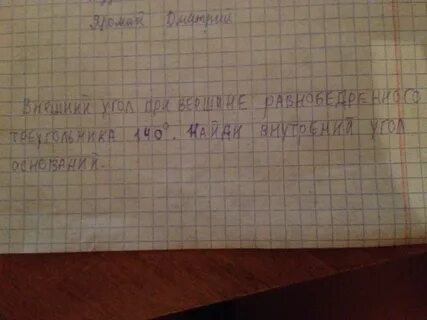 Дмитрий
Внешний угол при вершине равнобедренного
треугольника 140°. Найди внутрений угол
оснований.